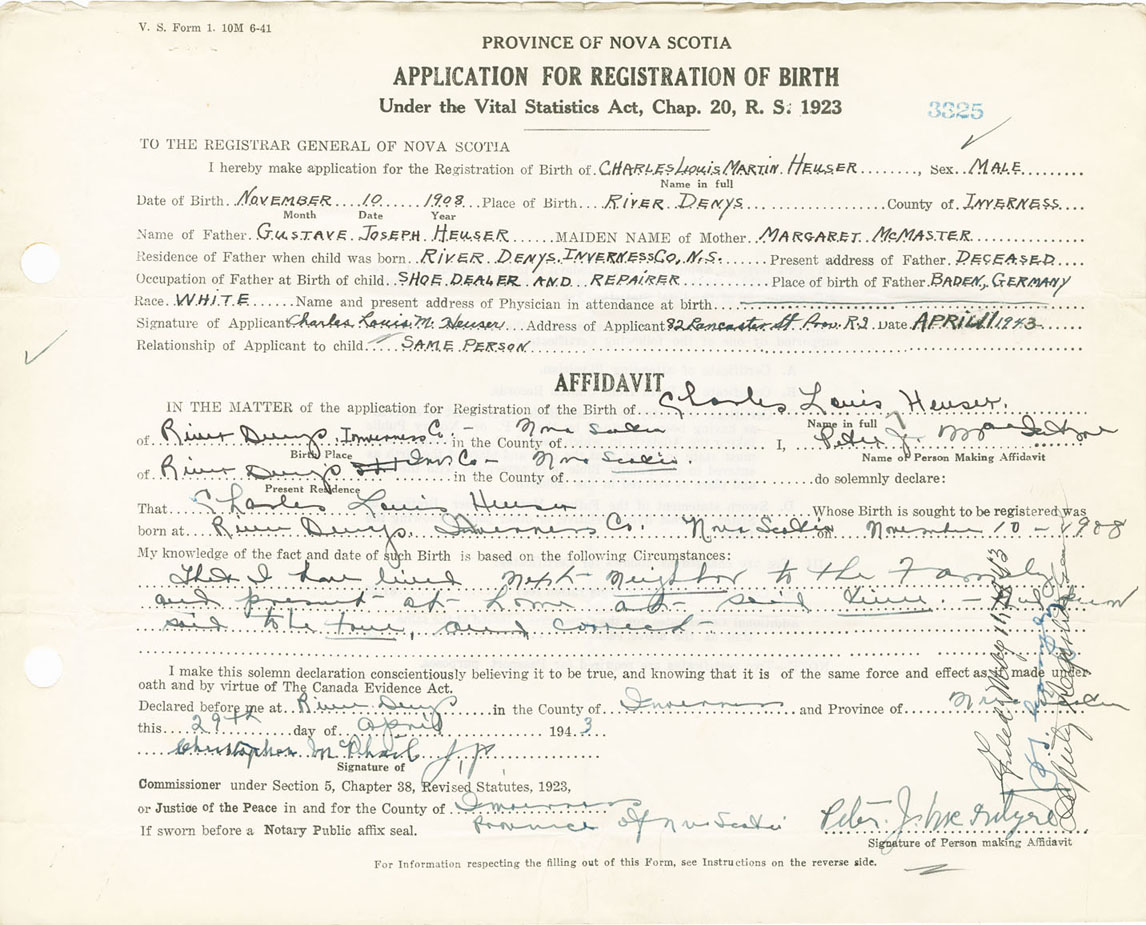 V. S. Form 1. 10M 6-41
PROVINCE OF NOVA SCOTIA
APPLICATION FOR REGISTRATION OF BIRTH
Under the Vital Statistics Act, Chap. 20, R. S. 1923
3325
TO THE REGISTRAR GENERAL OF NOVA SCOTIA
I hereby make application for the Registration of Birth of CHARLES LOUIS MARTIN HEUSER, Sex MALE
Name in full
Date of Birth NOVEMBER 10 1908 Place of Birth RIVER DENYS County of INVERNESS
Month Date Year
Name of Father GUSTAVE JOSEPH HEUSER MAIDEN NAME of Mother MARGARET McMASTER
Residence of Father when child was born RIVER DENYS, INVERNESS CO, N.S. Present address of Father DECEASED
Occupation of Father at Birth of child SHOE DEALER AND REPAIRER Place of birth of Father BADEN, GERMANY
Race WHITE Name and present address of Physician in attendance at birth
Signature of Applicant Charles Louis M. Heuser Address of Applicant 82 Lancaster St. Prov. R.I. Date APRIL 11 1943
Relationship of Applicant to child SAME PERSON
AFFIDAVIT
IN THE MATTER of the application for Registration of the Birth of Charles Louis Heuser.
Name in full
of River Denys, Inverness Co - Nova Scotia in the County of I, Peter J.
Birth Place Name of Person Making Affidavit
of River Denys Inv Co - Nova Scotia. in the County of do solemnly declare:
Present Residence
That Charles Louis Heuser Whose Birth is sought to be registered was
born at River Denys, Inverness Co. Nova Scotia on November 10 - 1908
My knowledge of the fact and date of such Birth is based on the following Circumstances:
That I have lived next neighbor to the Family
and present at home at said time. -
said to be true, and correct -
I make this solemn declaration conscientiously believing it to be true, and knowing that it is of the same force and effect as if made under
oath and by virtue of The Canada Evidence Act.
Declared before me at River Denys in the County of Inverness and Province of Nova Scotia
this 29th day of April 1943
Christopher McPhail J.P.
Signature of
Commissioner under Section 5, Chapter 38, Revised Statutes, 1923,
or Justice of the Peace in and for the County of Inverness
If sworn before a Notary Public affix seal. Province of Nova Scotia Peter J. McIntyre
Signature of Person making Affidavit
For Information respecting the filling out of this Form, see Instructions on the reverse side.
Filed May 11, 1943
Deputy Registrar